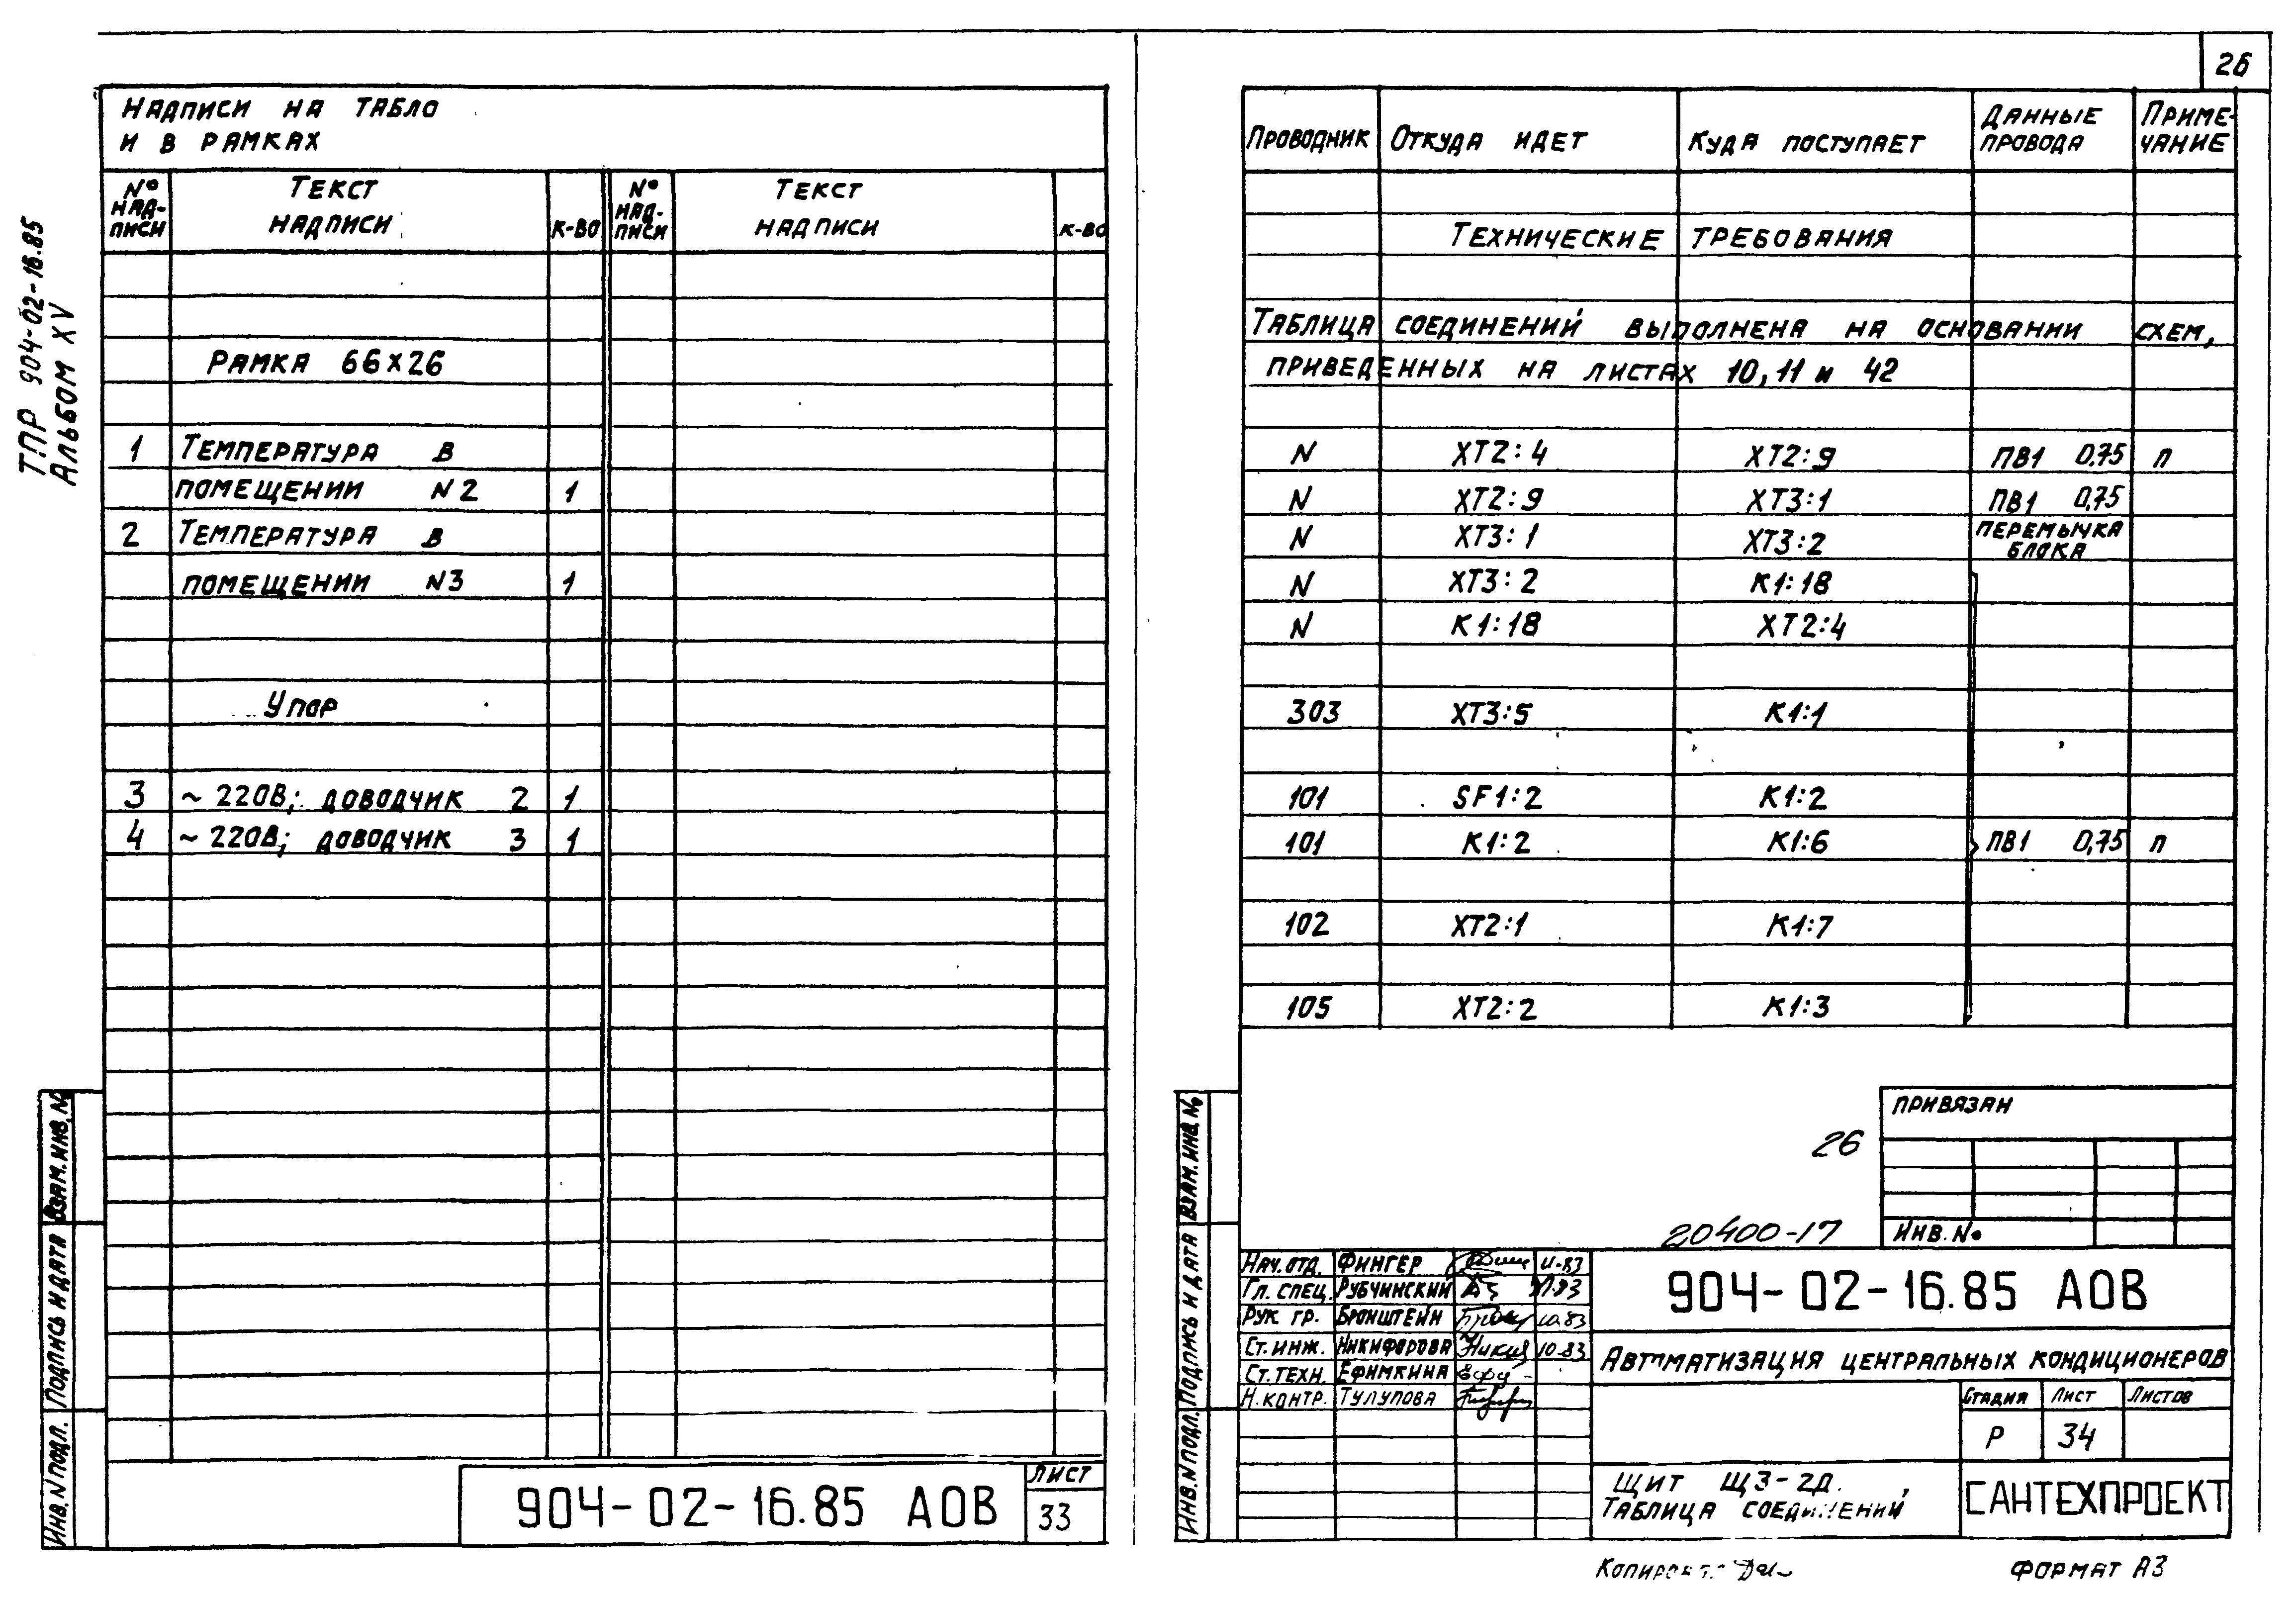 26
ТПР 904-02-16.85
Альбом XV
Надписи на табло
и в рамках
№ надписи Текст надписи к-во № надписи Текст надписи к-во
Рамка 66х26
1 Температура в
помещении N2 1
2 Температура в
помещении N3 1
Упор
3 ~ 220В; доводчик 2 1
4 ~ 220В; доводчик 3 1
Взам. инв. №
Подпись и дата
Инв. N подл.
904-02-16.85 АОВ
Лист
33
Проводник Откуда идет Куда поступает Данные провода Примечание
Технические требования
Таблица соединений выполнена на основании схем,
приведенных на листах 10, 11 и 42
N ХТ2:4 ХТ2:9 ПВ1 0,75 п
N ХТ2:9 ХТ3:1 ПВ1 0,75
N ХТ3:1 ХТ3:2 перемычка блока
N ХТ3:2 К1:18
N К1:18 ХТ2:4
303 ХТ3:5 К1:1
101 SF1:2 К1:2
101 К1:2 К1:6 ПВ1 0,75 п
102 ХТ2:1 К1:7
105 ХТ2:2 К1:3
Взам. инв. №
Подпись и дата
Инв. N подл.
Привязан
26
20400-17
Инв. №
Нач. отд. Фингер 11-83
Гл. спец. Рубчинский
Рук гр. Бронштейн 10.83
Ст. инж. Никифорова 10-83
Ст. техн. Ефимкина
Н. контр. Тулупова
904-02-16.85 АОВ
Автоматизация центральных кондиционеров
Стадия Лист Листов
Р 34
Щит Щ3-2Д.
Таблица соединений
САНТЕХПРОЕКТ
Формат А3